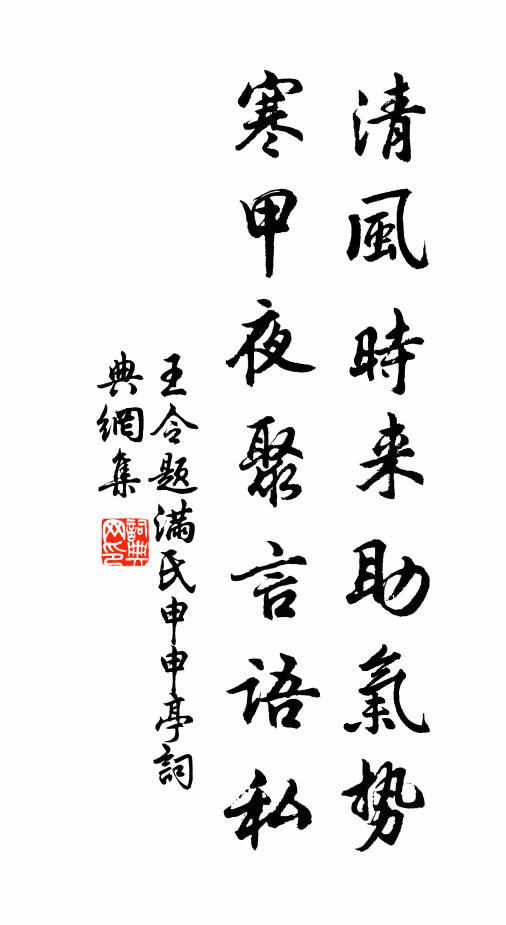 清風時来助氣势
寒甲夜聚言語私
王令题满氏申申亭詞
典網集
詞典网印